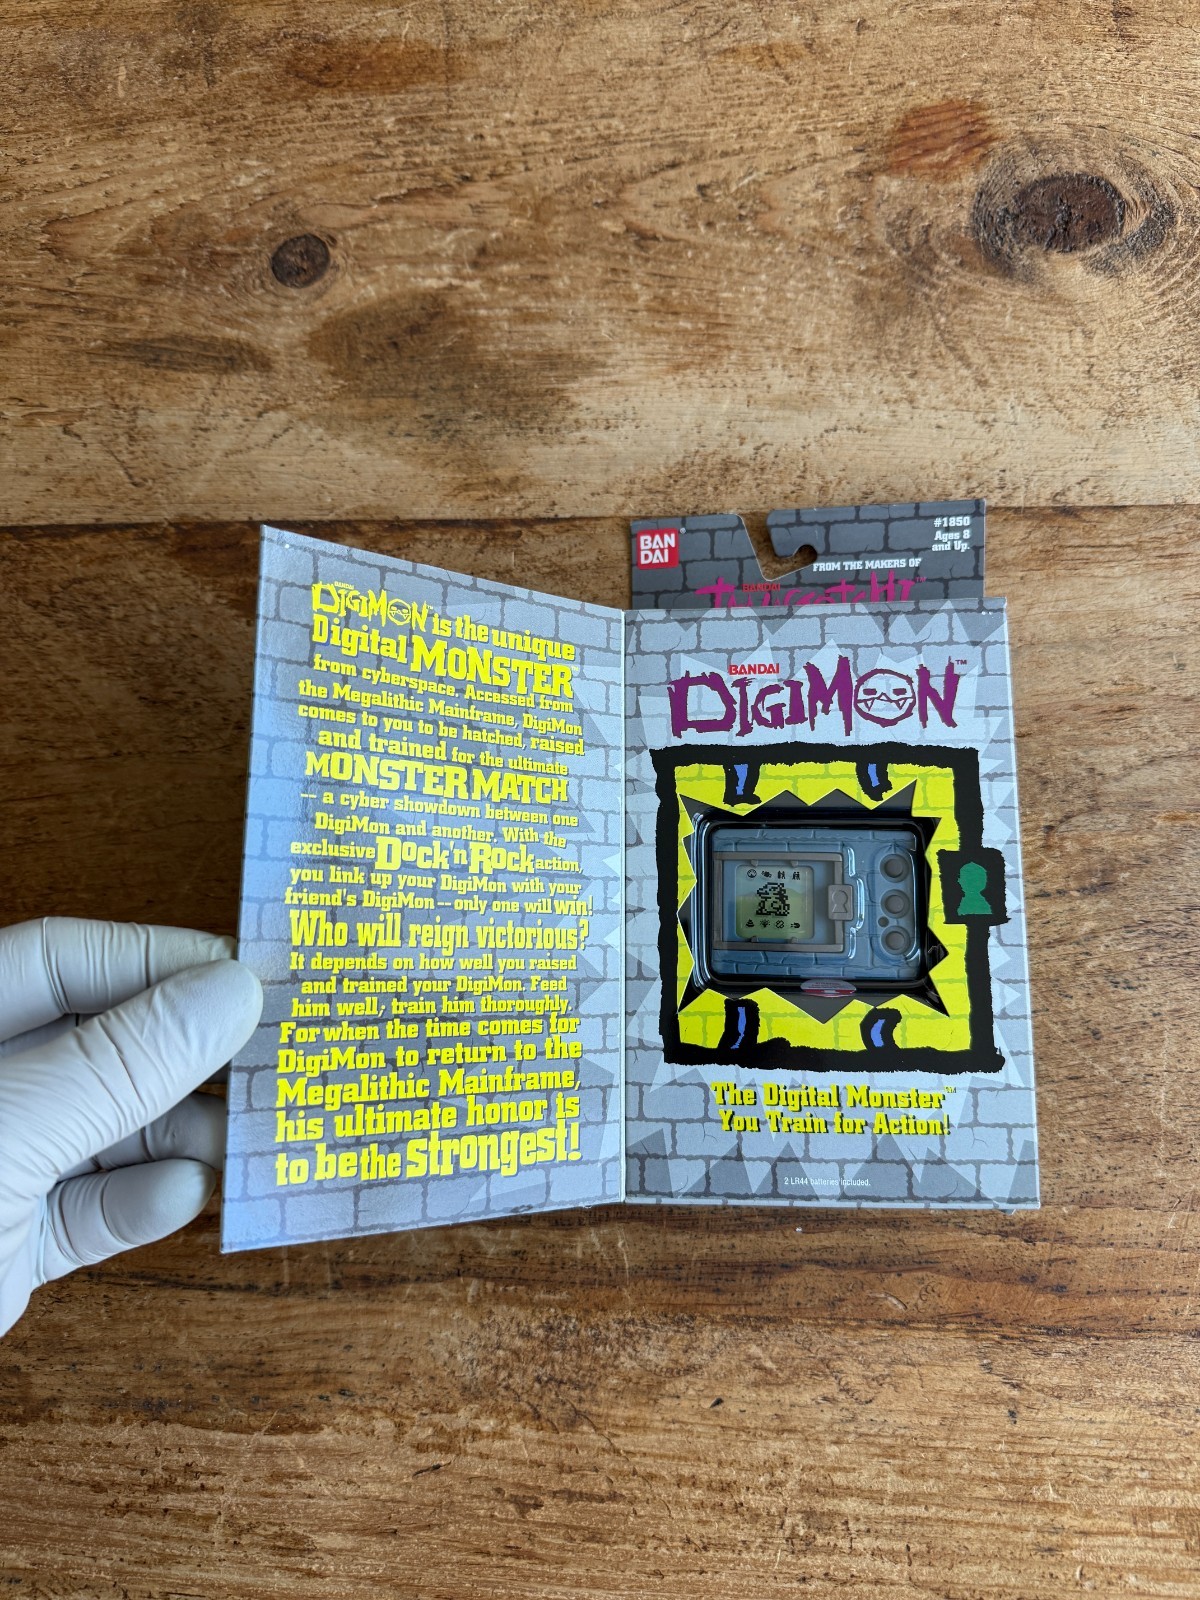 BANDAI
DIGIMON™ is the unique
Digital MONSTER™
from cyberspace. Accessed from
the Megalithic Mainframe, DigiMon
comes to you to be hatched, raised
and trained for the ultimate
MONSTER MATCH
-- a cyber showdown between one
DigiMon and another. With the
exclusive Dock'n Rock action,
you link up your DigiMon with your
friend's DigiMon -- only one will win!
Who will reign victorious?
It depends on how well you raised
and trained your DigiMon. Feed
him well, train him thoroughly.
For when the time comes for
DigiMon to return to the
Megalithic Mainframe,
his ultimate honor is
to be the strongest!
BAN
DAI®
#1850
Ages 8
and Up.
FROM THE MAKERS OF
BANDAI
TAMAGOTCHI™
BANDAI
DIGIMON™
The Digital Monster™
You Train for Action!
2 LR44 batteries included.